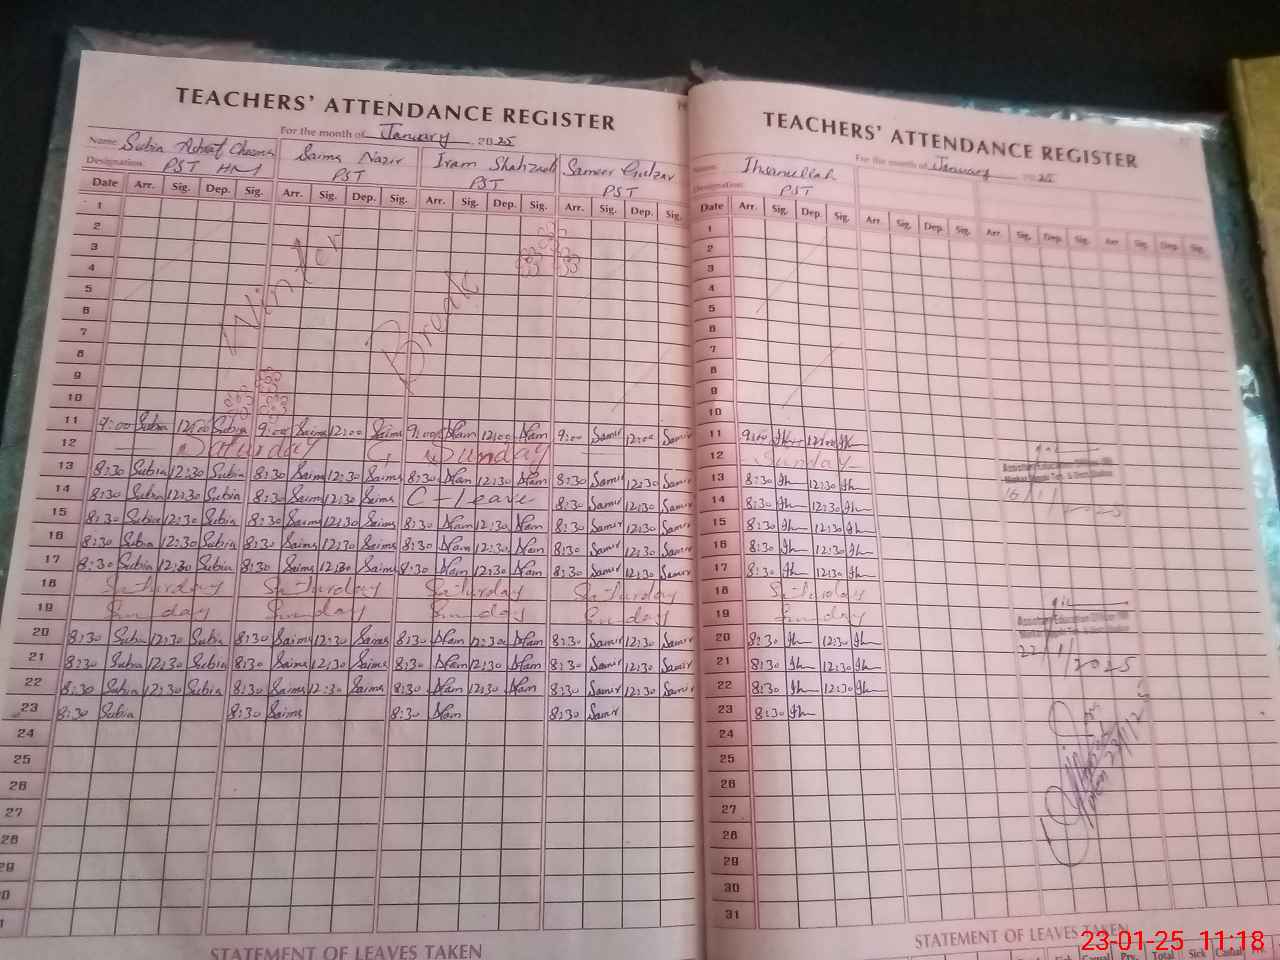 TEACHERS' ATTENDANCE REGISTER
For the month of January 2025
Name Subia Ashraf Saima Nazir Iram Shahzadi Sameer Gulzar
Designation PST HM PST PST PST
Date Arr. Sig. Dep. Sig. Arr. Sig. Dep. Sig. Arr. Sig. Dep. Sig. Arr. Sig. Dep. Sig.
1
2
3
4
5
6
7
8
9
10
Winter Break
11 9:00 Subia 12:00 Subia 9:00 Saima 12:00 Saima 9:00 12:00 9:00 Samir 12:00 Samir
12 Sunday
13 8:30 Subia 12:30 Subia 8:30 Saima 12:30 Saima 8:30 12:30 8:30 Samir 12:30 Samir
14 8:30 Subia 12:30 Subia 8:30 Saima 12:30 Saima C-Leave 8:30 Samir 12:30 Samir
15 8:30 Subia 12:30 Subia 8:30 Saima 12:30 Saima 8:30 12:30 8:30 Samir 12:30 Samir
16 8:30 Subia 12:30 Subia 8:30 Saima 12:30 Saima 8:30 12:30 8:30 Samir 12:30 Samir
17 8:30 Subia 12:30 Subia 8:30 Saima 12:30 Saima 8:30 12:30 8:30 Samir 12:30 Samir
18 Saturday Saturday Saturday Saturday
19 Sunday Sunday Sunday Sunday
20 8:30 Subia 12:30 Subia 8:30 Saima 12:30 Saima 8:30 12:30 8:30 Samir 12:30 Samir
21 8:30 Subia 12:30 Subia 8:30 Saima 12:30 Saima 8:30 12:30 8:30 Samir 12:30 Samir
22 8:30 Subia 12:30 Subia 8:30 Saima 12:30 Saima 8:30 12:30 8:30 Samir 12:30 Samir
23 8:30 Subia 8:30 Saima 8:30 8:30 Samir
24
25
26
27
28
29
STATEMENT OF LEAVES TAKEN
TEACHERS' ATTENDANCE REGISTER
For the month of January 2025
Name Ihsanullah
Designation PST
Date Arr. Sig. Dep. Sig. Arr. Sig. Dep. Sig. Arr. Sig. Dep. Sig. Arr Sig. Dep. Sig.
1
2
3
4
5
6
7
8
9
10
11 9:00 Ih 12:00 Ih
12 Sunday
13 8:30 Ih 12:30 Ih
14 8:30 Ih 12:30 Ih
15 8:30 Ih 12:30 Ih
16 8:30 Ih 12:30 Ih
17 8:30 Ih 12:30 Ih
18 Saturday
19 Sunday
20 8:30 Ih 12:30 Ih
21 8:30 Ih 12:30 Ih
22 8:30 Ih 12:30 Ih
23 8:30 Ih
24
25
26
27
28
29
30
31
Assistant Education Officer
16/1/
Assistant Education Officer
22/1/2025
STATEMENT OF LEAVES TAKEN
Sick Casual Prv. Total Sick Casual
23-01-25 11:18